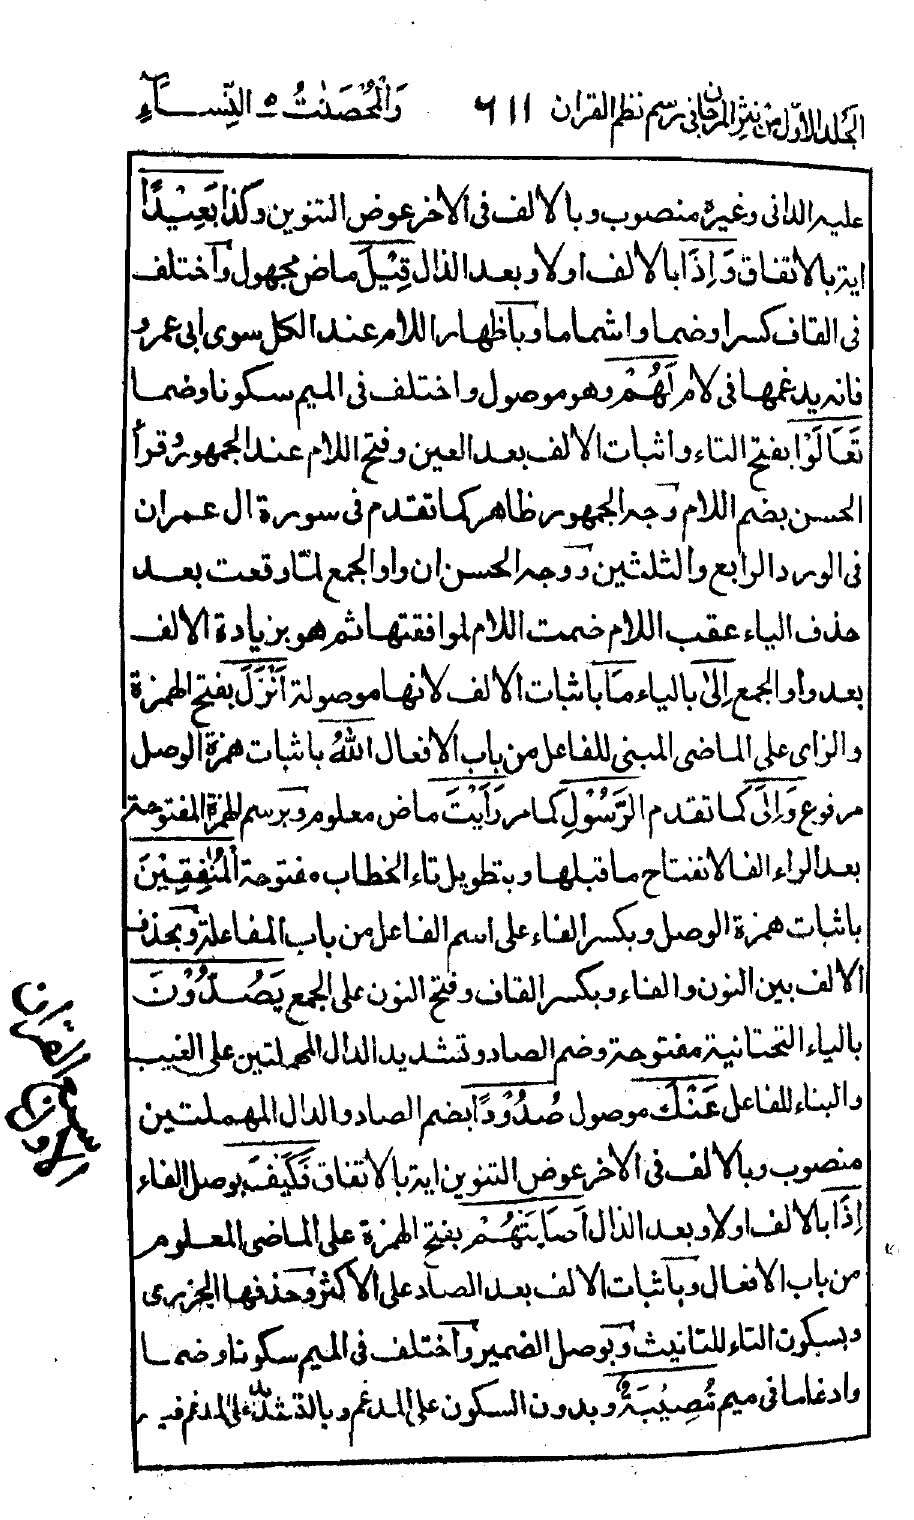 المجلد الاوّل من نثر المرجان فى رسم نظم القران ٦١١ وَالْمُحْصَنٰتُ ٥ النِّســاءِ
عليه الدانى وغيره منصوب وبالالف فى الاخر عوض التنوين وكذا بَعِيْدًا
اية بالاتفاق وَاِذَا بالالف اولا وبعد الذال قِيْلَ ماض مجهول واختلف
فى القاف كسرا وضما واشماما وباظهار اللام عند الكل سوى ابى عمرو
فانه يدغمها فى لام لَهُمْ وهو موصول واختلف فى الميم سكونا وضما
تَعَالَوْا بفتح التاء واثبات الالف بعد العين وفتح اللام عند الجمهور وقرأ
الحسن بضم اللام وجه الجمهور ظاهر كما تقدم فى سورة ال عمران
فى الورد الرابع والثلثين ووجه الحسن ان واو الجمع لمّا وقعت بعد
حذف الياء عقب اللام ضمت اللام لموافقتها ثم هو بزيادة الالف
بعد واو الجمع اِلٰى بالياء مَا باثبات الالف لانها موصولة اَنْزَلَ بفتح الهمزة
والزاى على الماضى المبنى للفاعل من باب الافعال اللهُ باثبات همزة الوصل
مرفوع وَاِلَى كما تقدم الرَّسُوْلِ كما مر رَاَيْتَ ماض معلوم وبرسم الهمزة المفتوحة
بعد الراء الفا لانفتاح ما قبلها وبتطويل تاء الخطاب مفتوحة الْمُنٰفِقِيْنَ
باثبات همزة الوصل وبكسر الفاء على اسم الفاعل من باب المفاعلة وبحذف
الالف بين النون والفاء وبكسر القاف وفتح النون على الجمع يَصُدُّوْنَ
بالياء التحتانية مفتوحة وضم الصاد وتشديد الدال المهملتين على الغيب
والبناء للفاعل عَنْكَ موصول صُدُوْدًا بضم الصاد والدال المهملتين
منصوب وبالالف فى الاخر عوض التنوين اية بالاتفاق فَكَيْفَ بوصل الفاء
اِذَا بالالف اولا وبعد الذال اَصَابَتْهُمْ بفتح الهمزة على الماضى المعلوم
من باب الافعال وباثبات الالف بعد الصاد على الاكثر وحذفها الجزرى
وبسكون التاء للتانيث وبوصل الضمير واختلف فى الميم سكونا وضما
وادغاما فى ميم مُصِيْبَةٌ وبدون السكون على المدغم وبالتشديد على المدغم فيه